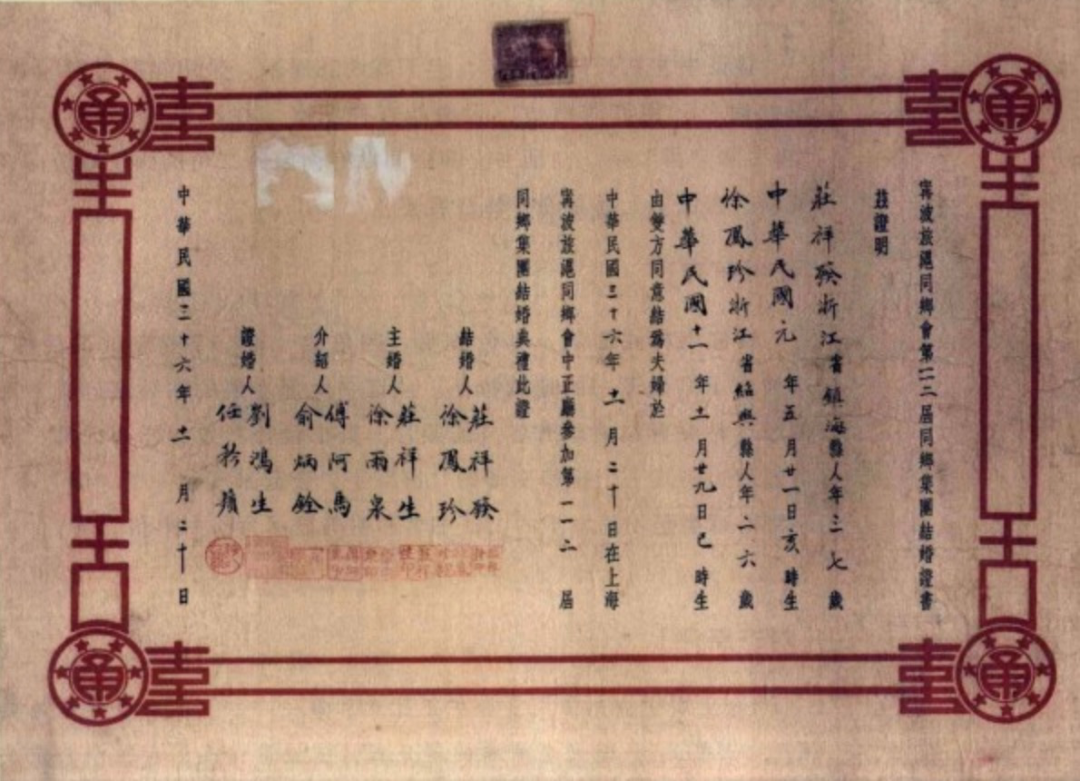 甯波旅滬同鄉會第一二屆同鄉集團結婚證書
茲證明
莊祥發浙江省鎮海縣人年三七歲
中華民國元年五月廿一日亥時生
徐鳳珍浙江省紹興縣人年二六歲
中華民國十一年十一月廿九日巳時生
由雙方同意結為夫婦於
中華民國三十六年十一月二十日在上海
甯波旅滬同鄉會中正廳參加第一一二屆
同鄉集團結婚典禮此證
結婚人 莊祥發 徐鳳珍
主婚人 莊祥生 徐雨泉
介紹人 傅阿馬 俞炳銓
證婚人 劉鴻生 任矜蘋
中華民國三十六年十一月二十日